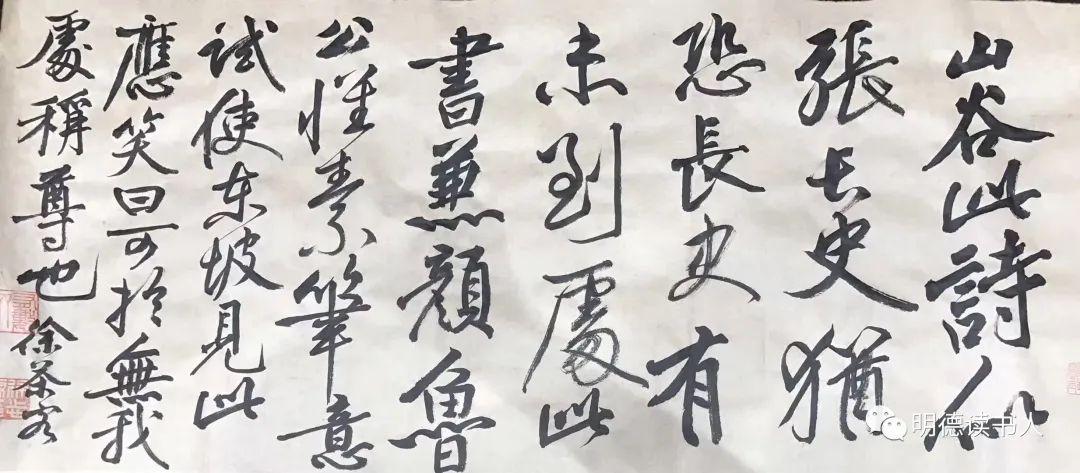 山谷此詩似
張长史猶
恐長史有
未到處此
書兼顏魯
公懷素筆意
試使东坡見此
應笑曰可於無我
處稱尊也 徐茶客
明德读书人